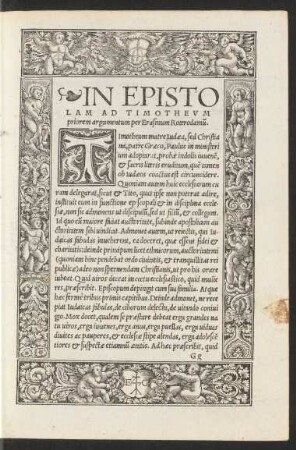 IN EPISTO
LAM AD TIMOTHEVM
priorem argumentum per Erasmum Roterodamū.
Timotheum matre Iudæa, sed Christia
na, patre Græco, Paulus in ministeri
um adoptarat, probæ indolis iuuenē,
& sacris literis eruditum, quē tamen
ob Iudæos coactus est circuncidere.
Quoniam autem huic ecclesiarum cu
ram delegarat, sicut & Tito, quas ipse non poterat adire,
instruit eum in functione episcopali & in disciplina eccle
siæ, sum sic admonens ut discipulū, sed ut filiū, & collegam.
Id quo maiore fiat autoritate, subinde apostolicum au
thoritatem sibi uindicat. Admonet autem, ut reiectis, qui
Iudaicas fabulas inueherent, ea doceret, quæ essent fidei &
charitatis: deinde principum licet ethnicorum, autoritatem
(quoniam hinc pendebat ordo ciuitatis, & tranquillitas rei
publicæ) adeo nō spernendam Christianis, ut pro his orare
iubeat. Quid uiros deceat in cœtu ecclesiastico, quid mulie
res, præscribit. Episcopum depingit cum sua familia. Atque
hæc ferme tribus primis capitibus. Deinde admonet, ne rece
piat Iudaicas fabulas, de ciborum delectu, de uitando coniu
gio. Mox docet, qualem se præstare debeat erga grandes na
tu uiros, erga iuuenes, erga anus, erga puellas, erga uiduas
diuites ac pauperes, & ecclesiæ stipe alendas, erga adolescē
tiores & suspectæ etiamnū ætatis. Ad hæc præscribit, quid
Gg